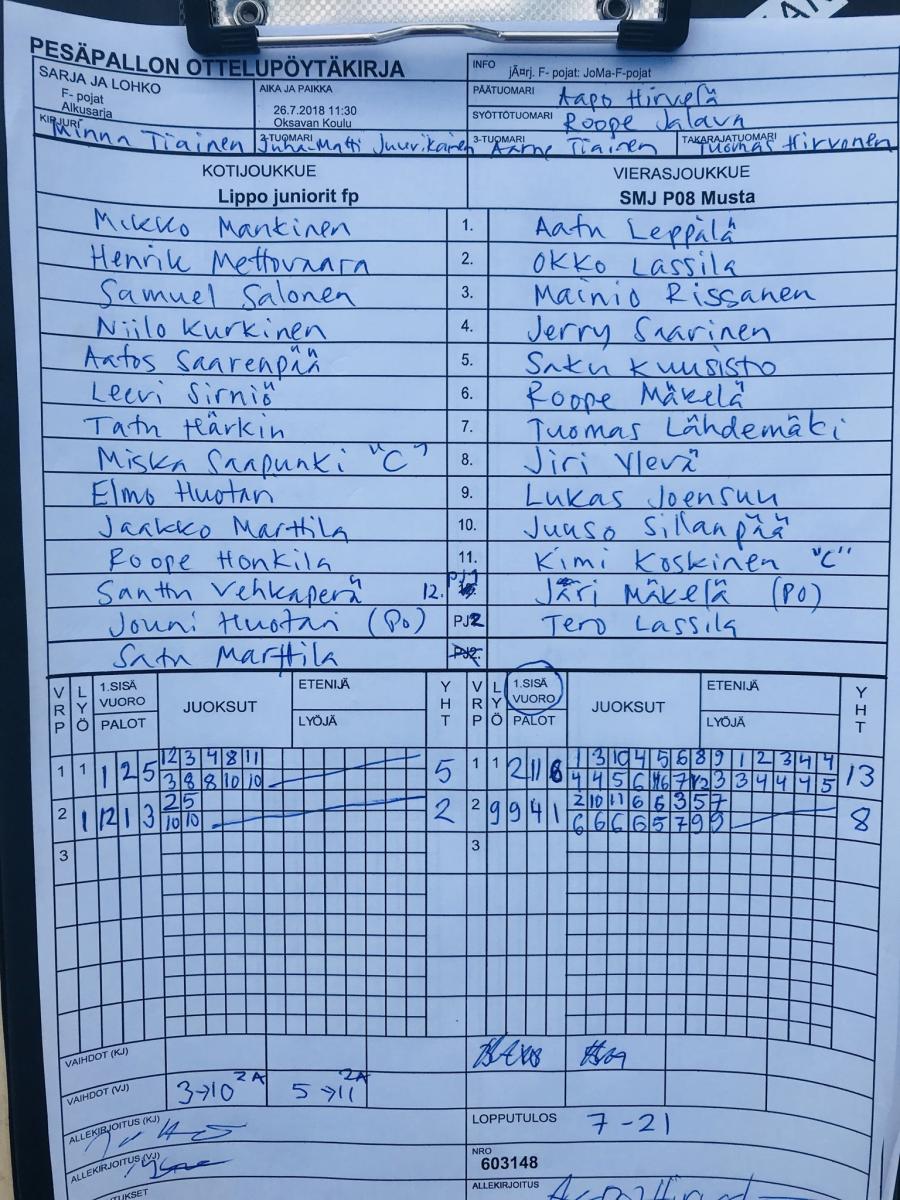 PESÄPALLON OTTELUPÖYTÄKIRJA
INFO
jÃ¤rj. F- pojat: JoMa-F-pojat
SARJA JA LOHKO
F- pojat
Alkusarja
AIKA JA PAIKKA
26.7.2018 11:30
Oksavan Koulu
PÄÄTUOMARI Aapo Hirvelä
SYÖTTÖTUOMARI Roope Jalava
KIRJURI Minna Tiainen
2-TUOMARI Juha-Matti Juurikainen
3-TUOMARI Aarne Tiainen
TAKARAJATUOMARI Tuomas Hirvonen
KOTIJOUKKUE VIERASJOUKKUE
Lippo juniorit fp SMJ P08 Musta
Mikko Mankinen 1. Aatu Leppälä
Henrik Mettovaara 2. Okko Lassila
Samuel Salonen 3. Mainio Rissanen
Niilo Kurkinen 4. Jerry Saarinen
Aatos Saarenpää 5. Saku Kuusisto
Leevi Sirniö 6. Roope Mäkelä
Tatu Härkin 7. Tuomas Lähdemäki
Miska Saapunki "C" 8. Jiri Ylevä
Elmo Huotari 9. Lukas Joensuu
Jaakko Marttila 10. Juuso Sillanpää
Roope Honkila 11. Kimi Koskinen "C"
Santtu Vehkaperä 12. PJ1 Järi Mäkelä (PO)
Jouni Huotari (PO) PJ2 Tero Lassila
Satu Marttila PJ2.
VRP LYÖ 1.SISÄ VUORO PALOT JUOKSUT ETENIJÄ LYÖJÄ YHT VRP LYÖ 1.SISÄ VUORO PALOT JUOKSUT ETENIJÄ LYÖJÄ YHT
12 3 4 8 11 1 3 10 4 5 6 8 9 1 2 3 4 4
1 1 1 2 5 5 1 1 2 11 6 13
3 8 8 10 10 4 4 5 6 7 12 3 3 4 4 4 5
2 5 2 10 11 6 6 3 5 7
2 1 12 1 3 2 2 9 9 4 1 8
10 10 6 6 6 6 5 7 9 9
3 3
VAIHDOT (KJ)
VAIHDOT (VJ) 3→10 2A 5→11 2A
ALLEKIRJOITUS (KJ)
LOPPUTULOS 7-21
ALLEKIRJOITUS (VJ)
NRO
603148
ALLEKIRJOITUS